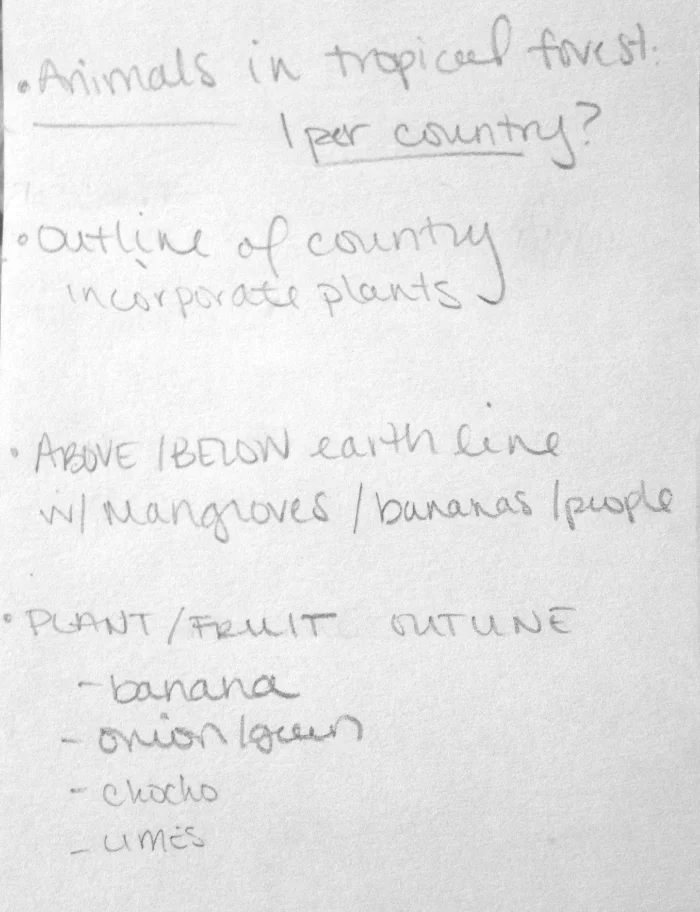 • Animals in tropical forest.
1 per country?
• Outline of country
incorporate plants
• ABOVE/BELOW earth line
w/ Mangroves/bananas/people
• PLANT/FRUIT OUTLINE
- banana
- onion/green
- chocho
- LIMES